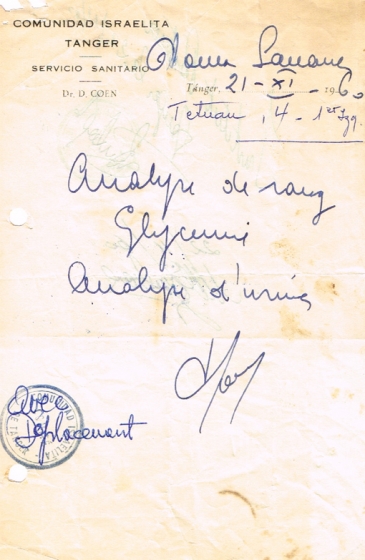 COMUNIDAD ISRAELITA
TANGER
SERVICIO SANITARIO
Dr. D. COEN
Tánger, 21 - XI - 1960
Tetuan, 4 - 1er Izq.
Analyse de sang
Glycemie
Analyse d'urine
Avec
Deplacement